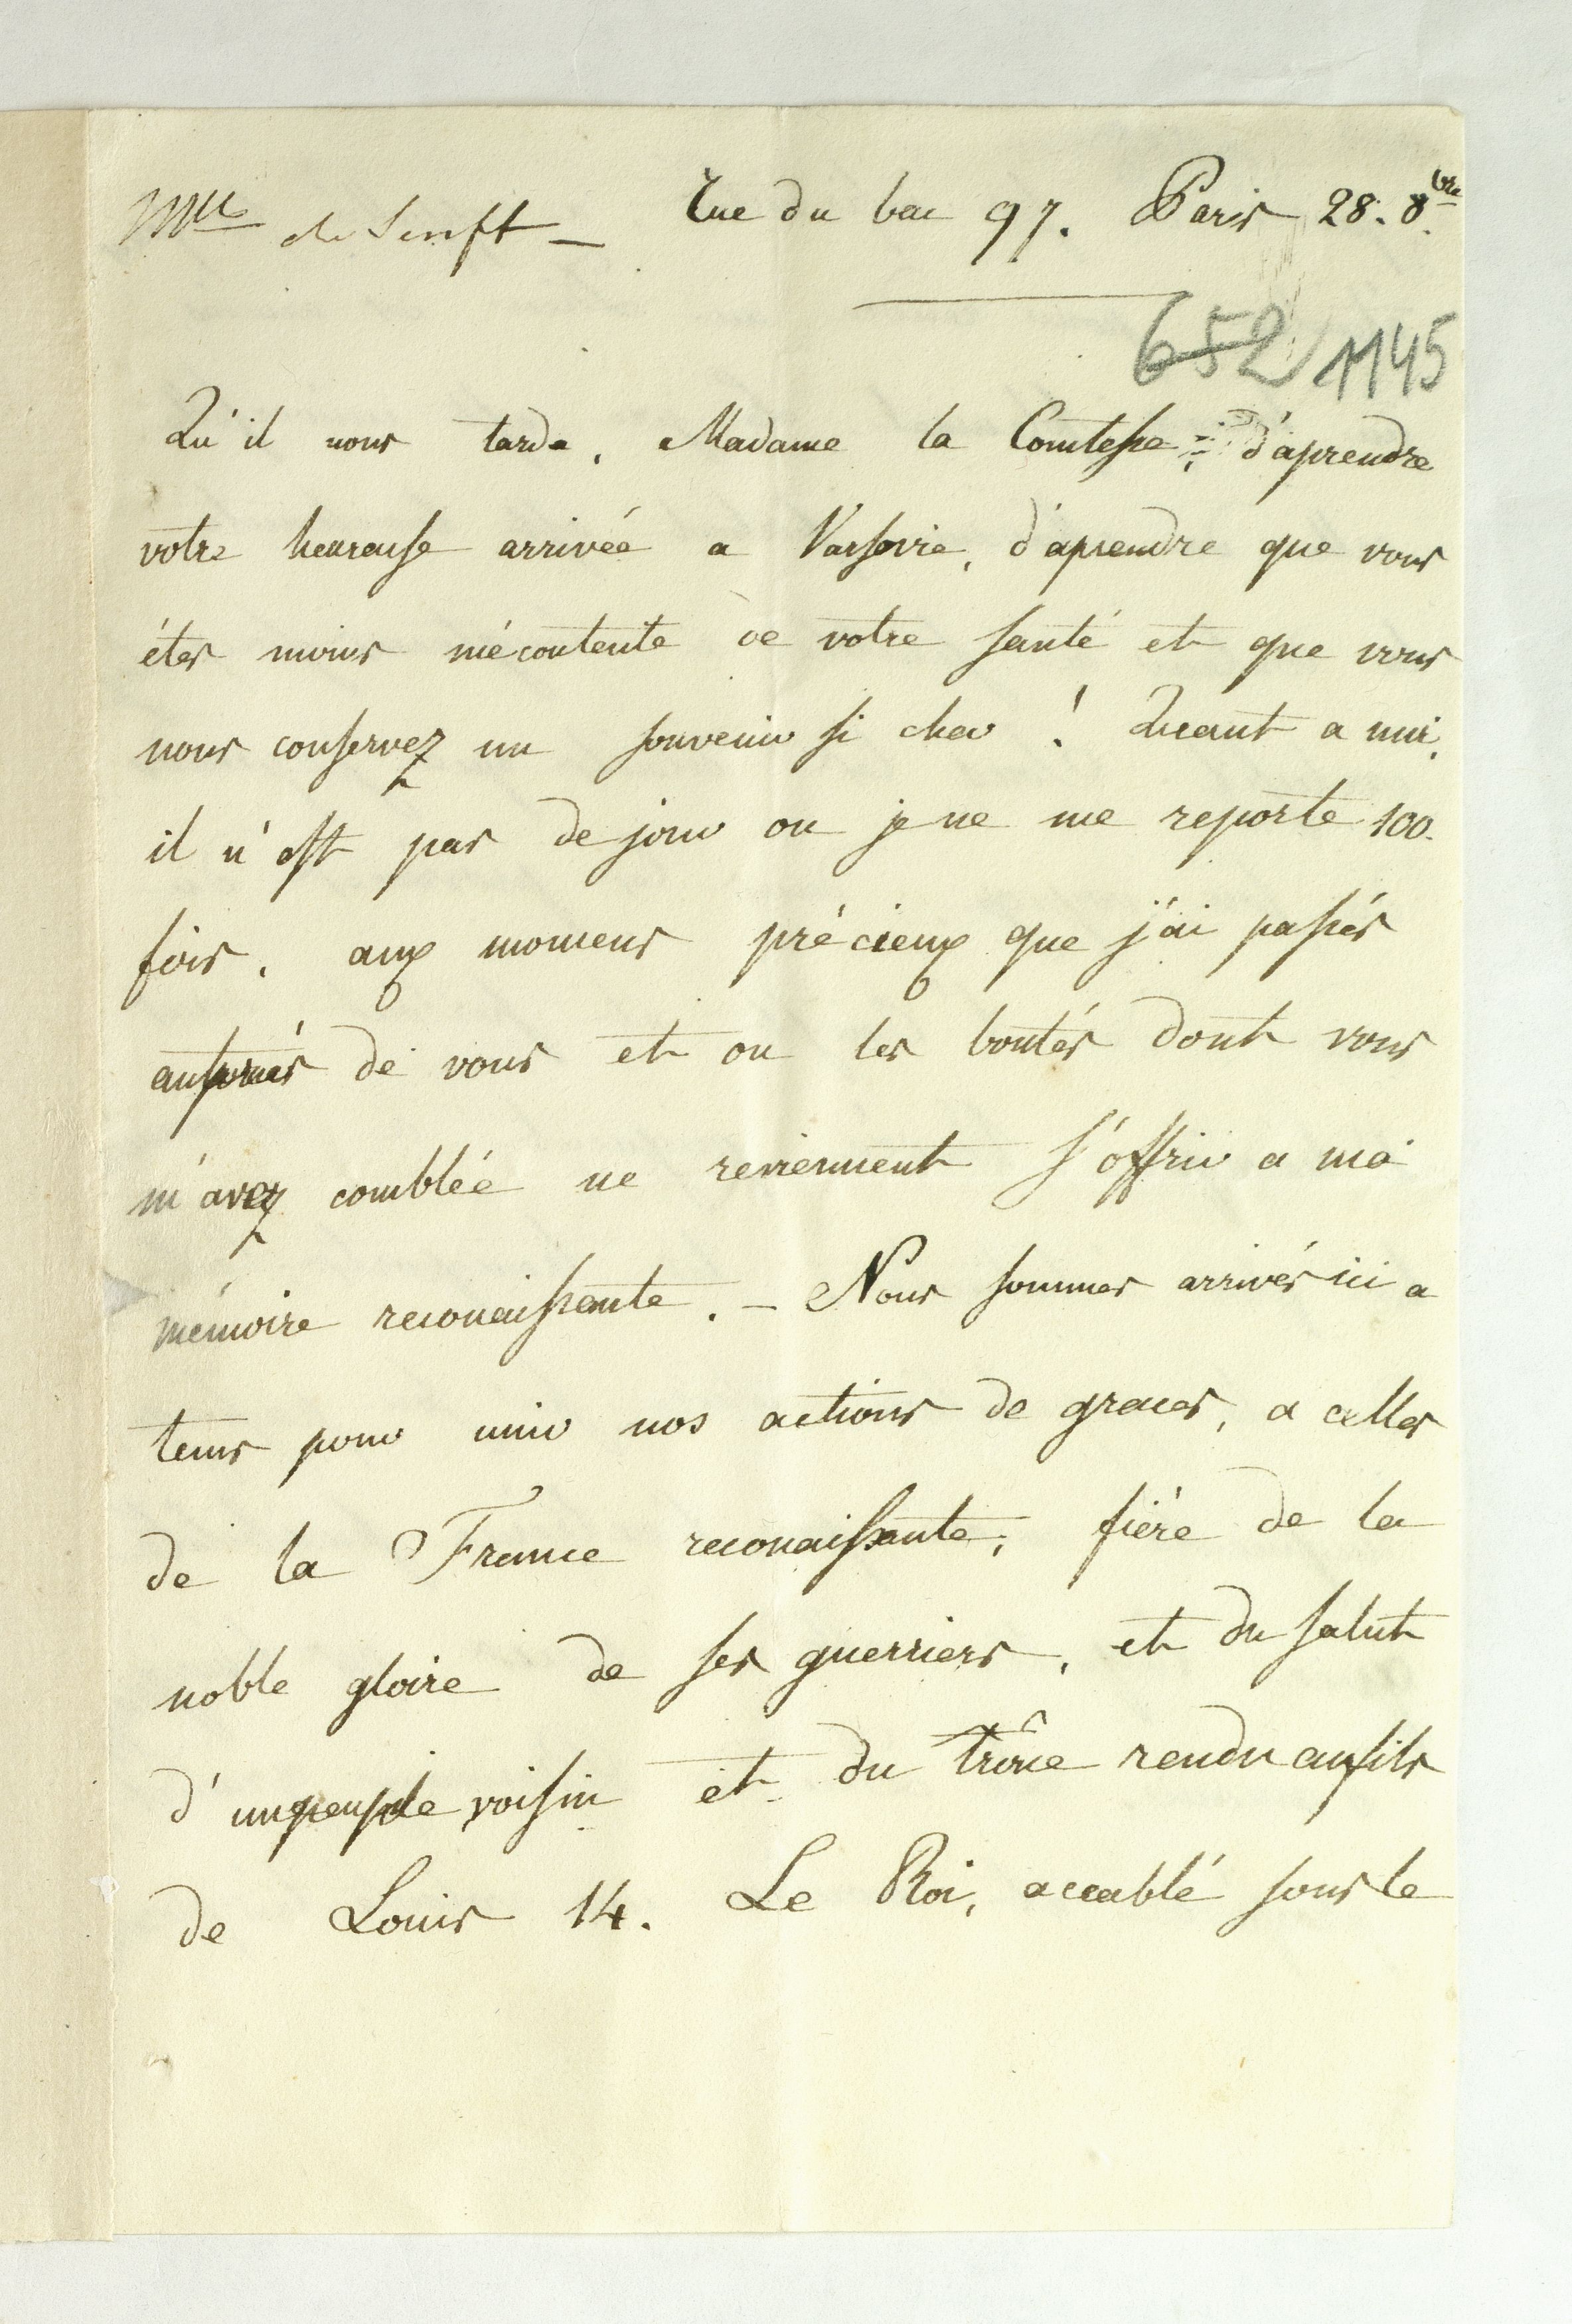 Mlle de Senft — rue du bac 97. Paris 28. 8bre
652 1145
Qu'il nous tarde, Madame la Comtesse, d'aprendre
votre heureuse arrivée a Varsovie, d'aprendre que vous
étes moins mécontente de votre santé et que vous
nous conservez un souvenir si cher ! Quant a moi,
il n'est pas de jour ou je ne me reporte 100.
fois, aux momens précieux que j'ai passés
auprès de vous et ou les bontés dont vous
m'avez comblée ne reviennent s'offrir a ma
mémoire reconaissante. — Nous sommes arrivés ici a
tems pour unir nos actions de graces, a celles
de la France reconaissante, fière de la
noble gloire de ses guerriers, et du salut
d'un peuple voisin et du trône rendu au fils
de Louis 14. Le Roi, accablé sous le